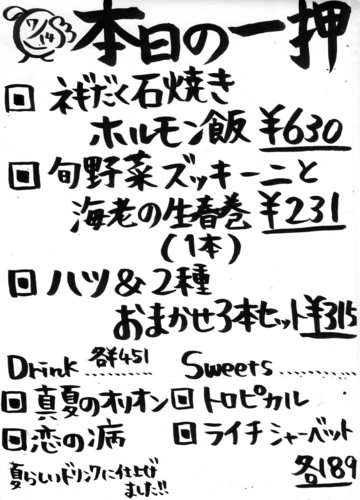 本日の一押
ネギだく石焼き
ホルモン飯 ¥630
旬野菜ズッキーニと
海老の生春巻 ¥231
(1本)
ハツ&2種
おまかせ3本セット¥315
Drink 各¥451 Sweets
真夏のオリオン トロピカル
恋の病 ライチシャーベット
夏らしいドリンクに仕上げ
ました!! 各189